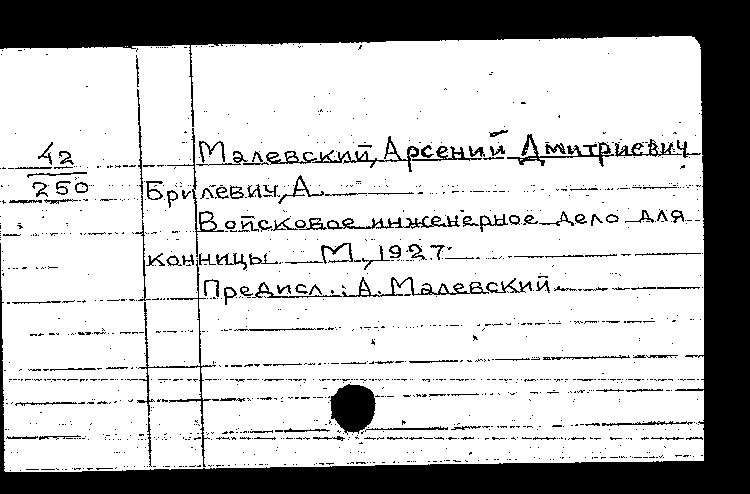 42
250
Малевский, Арсений Дмитриевич
Брилевич, А.
Войсковое инженерное дело для
конницы М., 1927.
Предисл.: А. Малевский.